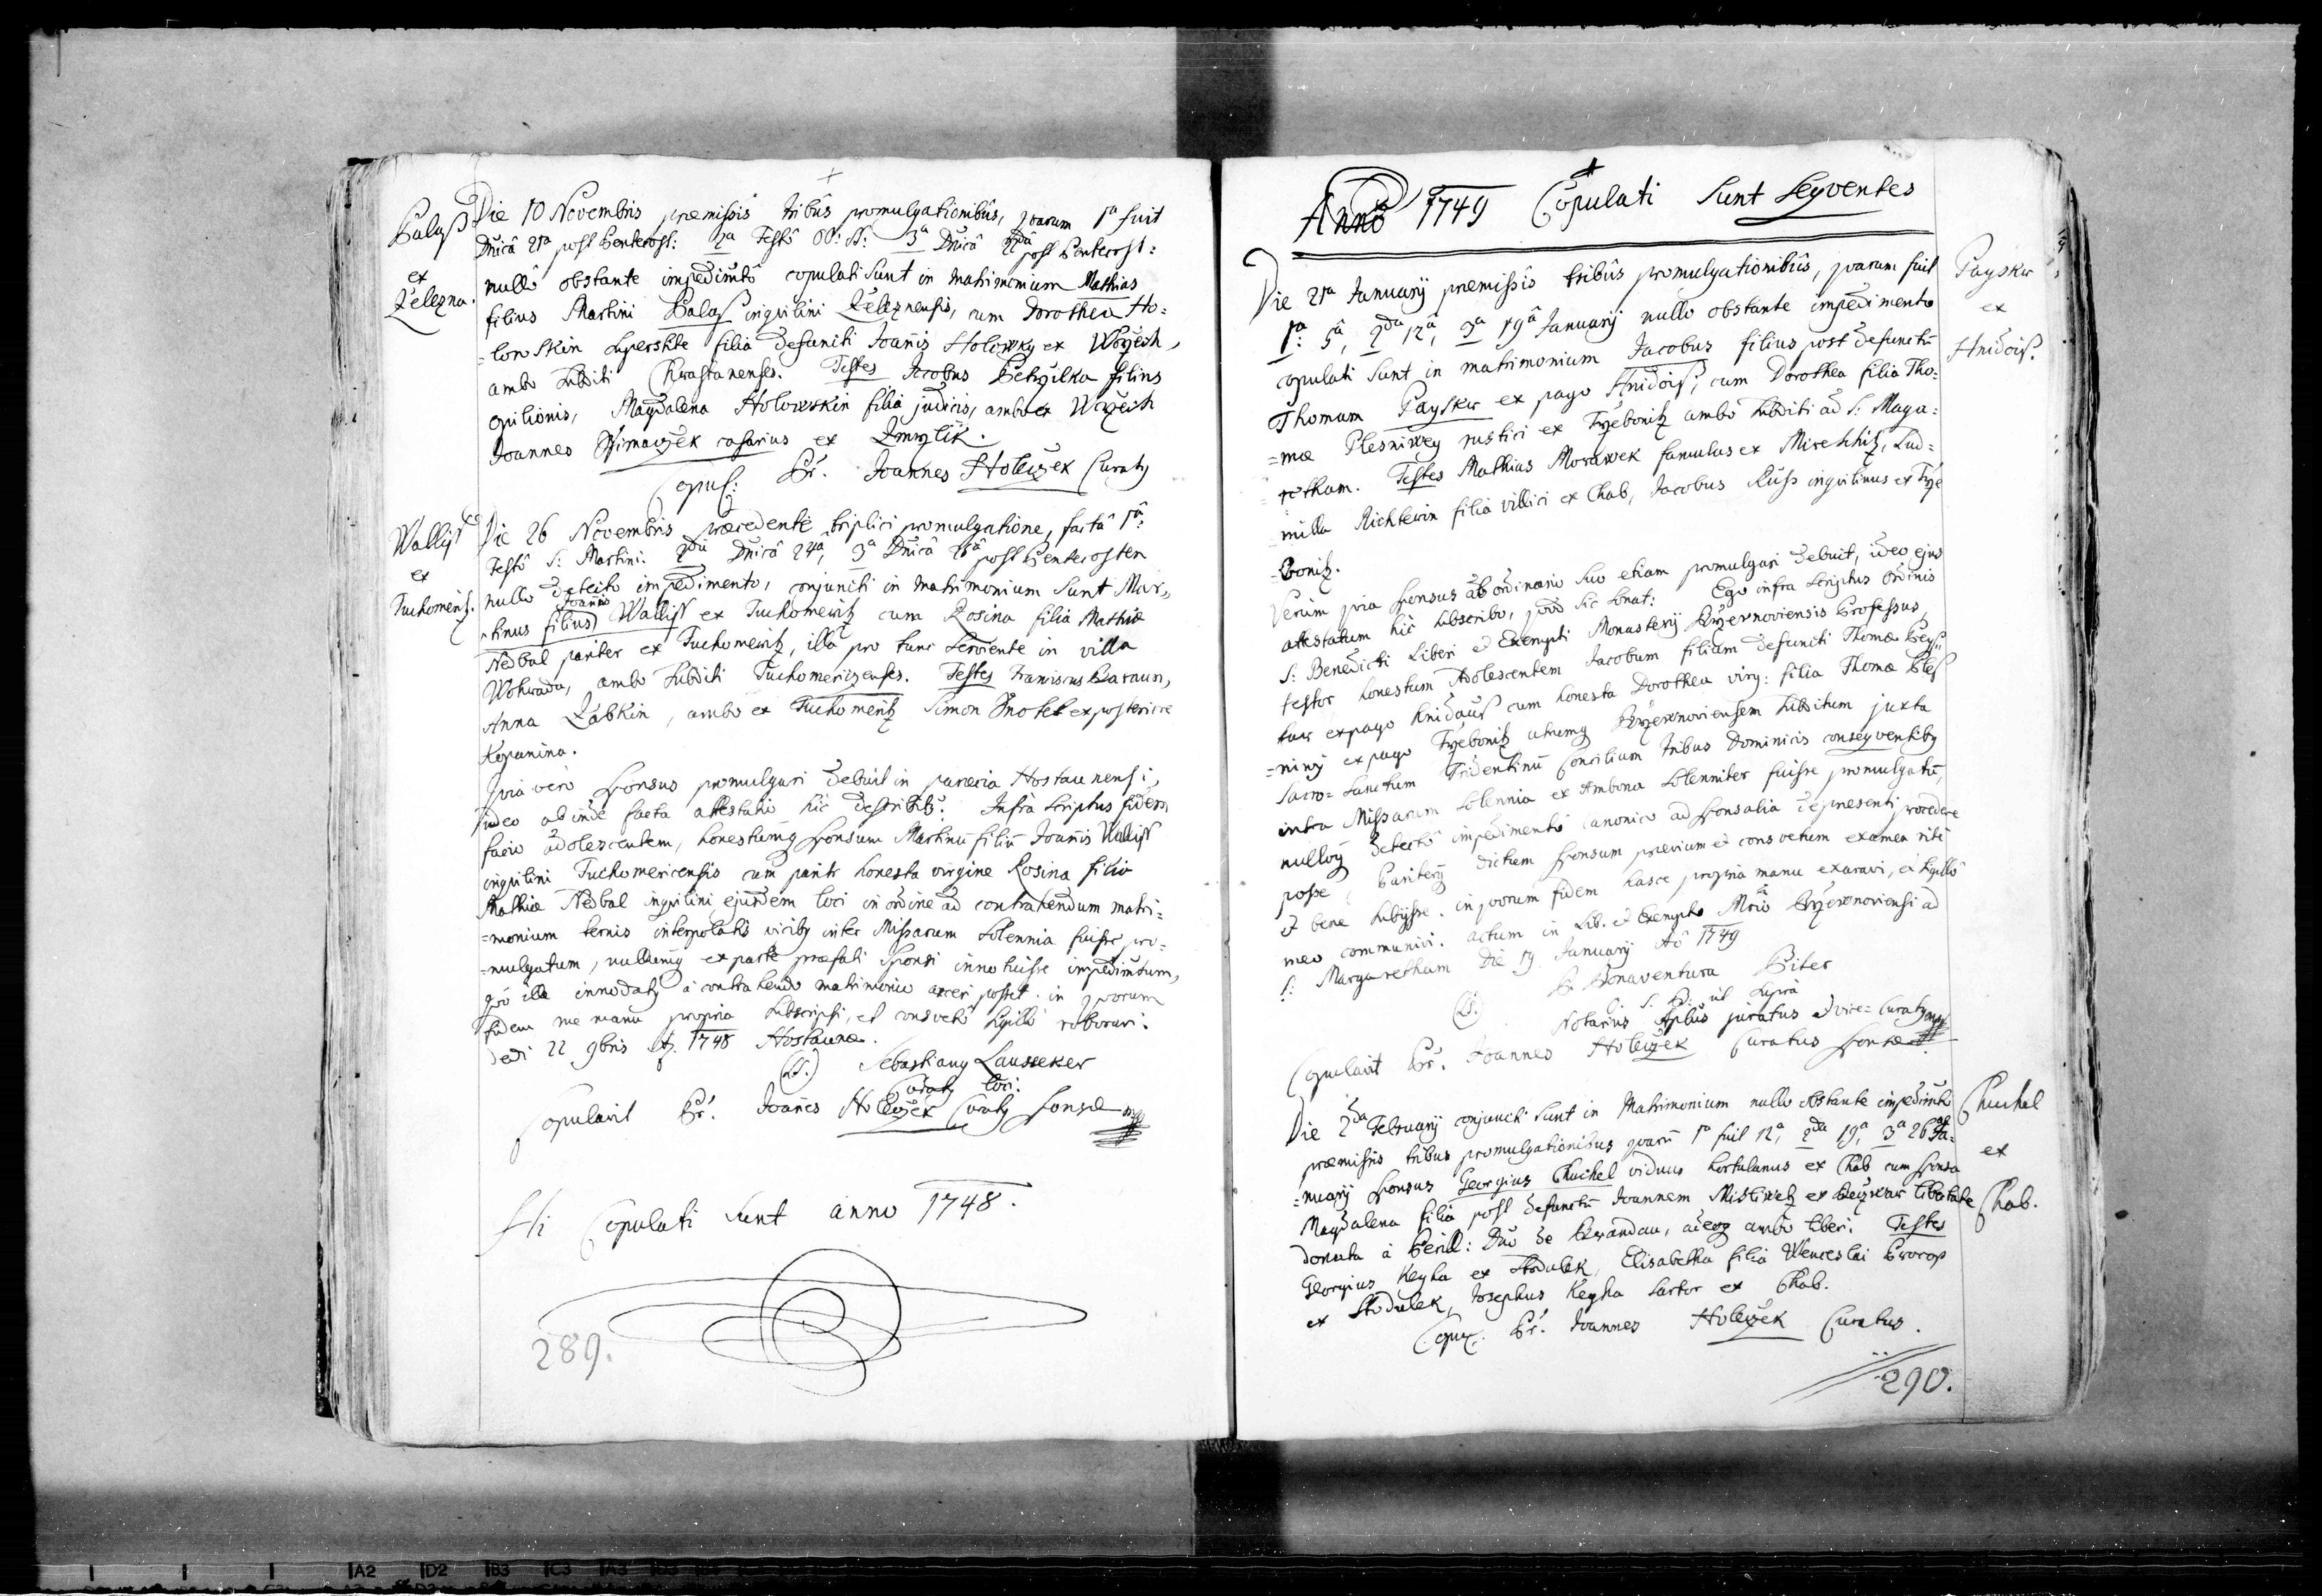 Balaß
ex
Zelezna.
Die 10 Novembris premissis tribus promulgationibus, quarum 1a fuit
Dnicâ 21a post Penterost: 2a Festô OO: SS: 3a Dnicâ post Penterost:
nullô obstante impedimtô copulati sunt in matrimonium Mathias
filius Martini Balaß inquilini Zeleznensis, cum Dorothea Ho=
=lowskin superstite filia defuncti Joanis Holowsky ex
ambo subditi Chrastanenses. Testes Jacobus Petrzilka filius
opilionis, Magdalena Holowskin filia judicis, ambo ex
Joannes casarius ex
Copul: Pr. Joannes Holeczek Curatg
Walliß
ex
Tuchomeritz.
Die 26 Novembris precedente triplici promulgatione, factâ 1â:
Festô S: Martini. 2da Dnicâ 24a, 3a Dnicâ 25â post Penterosten
nullo detecto impedimento, conjuncti in matrimonium sunt Mar=
=tinus filius Joannis Walliß ex Tuchomeritz cum Rosina filia Mathiæ
Nedbal pariter ex Tuchomeritz, illâ pro tunc serviente in villa
ambo subditi Tuchomerizenses. Testes Franciscus Baraun,
Anna Zabkin, ambo ex Tuchomeritz Simon ex posteriore
Kopanina.
Quia verò sponsus promulgari debuit in parœcia Hostaunensi,
ideo ab inde facta attestatio hic describitr: Infra scriptus fidem
facio adolescentem, honestumq sponsum Martinu filiu Joanis Walliß
inquilini Tuchomericensis cum paritr honesta virgine Rosina filia
Mathiæ Nedbal inquilini ejusdem loci in ordine ad contrahendum matri=
=monium ternis interpolatis vicibg inter Missarum solennia fuisse pro=
=mulgatum, nullumq ex parte præfati sponsi innotuisse impedimtum,
quô ille innodatg à contrahendo matrimonio arceri posset. in quorum
fidem me manu propria subscripsi, et consvetô sigillô roboravi.
Dedi 22 9bris Aô. 1748 Hostaunæ.
(LS.) Sebastiang Lausseker
Curatg loci.
Copulavit Pr. Joañes Holeczek Curatg sponsæ mp
Hi Copulati sunt anno 1748.
289.
Anno 1749 Copulati sunt seqventes
Payskr
ex
Hnidois?
Die 21a Januarij premissis tribus promulgationibus, quarum fuit
1a: 5â, 2da 12â, 3a 19â Januarij nullo obstante impedimento
copulati sunt in matrimonium Jacobus filius post defunctu
Thomam Payskr ex pago Hnidois, cum Dorothea filia Tho=
=mæ Plesniwey rustici ex Trzebonitz ambo subditi ad S: Marga=
=retham. Testes Mathias Morawek famulus ex Lud=
=milla Richterin filia villici ex Chab, Jacobus Russ inquilinus ex Trze
=bonitz.
Verùm quia sponsus ab ordinario suo etiam promulgari debuit, ideo ejus
attestatum hic subscribo, quod sic sonat: Ego infra scriptus Ordinis
S: Benedicti Liberi et Exempti Monasterij Brzewnoviensis Professus
testor honestum Adolescentem Jacobum filium defuncti Thomæ Pey=
ex pago Knidaus cum honesta Dorothea virg: filia Thomæ Ples
=niwy ex pago Trzebonitz utrumq Brzewnoviensem subditum juxta
Sacro=sanctum Tridentinu Concilium tribus Dominicis conseqventibg
intra Missarum solennia ex Ambona solenniter fuisse promulgatu,
nulloq detectô impedimentô canonico ad sponsalia de præsenti procedere
posse. Pariterq dictum sponsum prævium et consvetum examen ritè
et bene subijsse. in quorum fidem hasce propria manu exaravi, et sigillô
meo communivi. actum in Lib. et Exempto Mrio Brzewnoviensi ad
S: Margaretham Die 19 January Aô 1749
P. Bonaventura Piter
O: S: B: ut supra
(LS.) Notarius Aplicus juratus et vice=Curatg mp
Copulavit Pr. Joannes Holeczek Curatus sponsæ
Chuchel
ex
Chab.
Die 2da February conjuncti sunt in Matrimonium nullo obstante impedimto
præmissis tribus promulgationibus quaru 1a fuit 12a, 2da 19a, 3a 26ta Ja=
=nuarij sponsus Georgius Chuchel viduus hortulanus ex Chab cum sponsa
Magdalena filia post defunctu Joannem ex libertate
donata à Perill: Dno de adeoq ambo liberi. Testes
Georgius Keyha ex Stodulek, Elisabetha filia Wenceslai Procop
ex Stodulek, Josephus Keyha sartor ex Chab.
Copul: Pr. Joannes Holeczek Curatus.
290.